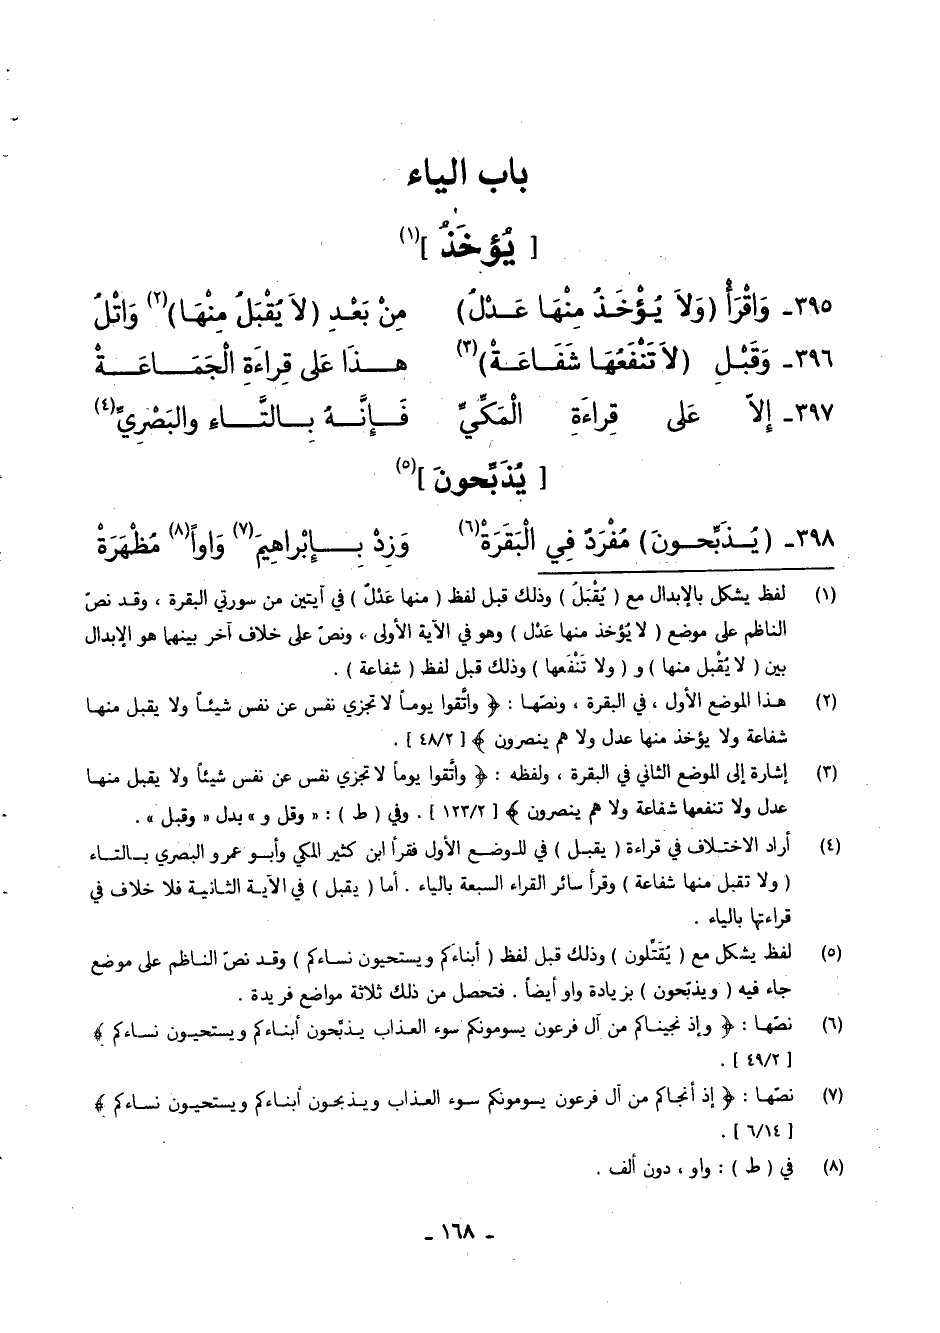 باب الياء
[ يُؤخَذُ ](١)
٣٩٥ـ وَاقْرَأْ (وَلَا يُؤْخَذُ مِنْهَا عَدْلُ) مِنْ بَعْدِ (لَا يُقْبَلُ مِنْهَا)(٢) وَاتْلُ
٣٩٦ـ وَقَبْلِ (لَا تَنْفَعُهَا شَفَاعَةْ)(٣) هذَا عَلى قِراءَةِ الْجَمَاعَةْ
٣٩٧ـ إلاّ عَلى قِراءَةِ الْمَكِّيِّ فَإنَّهُ بالتَّاء والبَصْرِيِّ(٤)
[ يُذَبِّحونَ ](٥)
٣٩٨ـ (يُذَبِّحونَ) مُفْرَدٌ فِي الْبَقَرَةْ(٦) وَزِدْ بِإبْراهِيمَ(٧) وَاواً(٨) مُظْهَرَةْ
(١) لفظ يشكل بالإبدال مع ( يُقْبَلُ ) وذلك قبل لفظ ( منها عَدْلٌ ) في آيتين من سورتي البقرة ، وقد نصّ
الناظم على موضع ( لا يُؤخذ منها عَدْل ) وهو في الآية الأولى ، ونصّ على خلاف آخر بينهما هو الإبدال
بين ( لا يُقْبل منها ) و ( ولا تَنْفَعها ) وذلك قبل لفظ ( شفاعة ) .
(٢) هذا الموضع الأول ، في البقرة ، ونصّها : ﴿ واتَّقوا يوماً لا تجزي نفس عن نفس شيئاً ولا يقبل منها
شفاعة ولا يؤخذ منها عدل ولا هم ينصرون ﴾ [ ٤٨/٢ ] .
(٣) إشارة إلى الموضع الثاني في البقرة ، ولفظه : ﴿ واتَّقوا يوماً لا تجزي نفس عن نفس شيئاً ولا يقبل منها
عدل ولا تنفعها شفاعة ولا هم ينصرون ﴾ [ ١٢٣/٢ ] . وفي ( ط ) : « وقل و » بدل « وقبل » .
(٤) أراد الاختلاف في قراءة ( يقبل ) في الموضع الأول فقرأ ابن كثير المكي وأبو عمرو البصري بالتاء
( ولا تقبل منها شفاعة ) وقرأ سائر القراء السبعة بالياء . أما ( يقبل ) في الآية الثانية فلا خلاف في
قراءتها بالياء .
(٥) لفظ يشكل مع ( يُقَتِّلون ) وذلك قبل لفظ ( أبناءَكم ويستحيون نساءكم ) وقد نصّ الناظم على موضع
جاء فيه ( ويذبّحون ) بزيادة واو أيضاً . فتحصل من ذلك ثلاثة مواضع فريدة .
(٦) نصّها : ﴿ وإذ نجيناكم من آل فرعون يسومونكم سوء العذاب يذبّحون أبناءكم ويستحيون نساءكم ﴾
[ ٤٩/٢ ] .
(٧) نصّها : ﴿ إذ أنجاكم من آل فرعون يسومونكم سوء العذاب ويذبحون أبناءكم ويستحيون نساءكم ﴾
[ ٦/١٤ ] .
(٨) في ( ط ) : واو ، دون ألف .
ـ ١٦٨ ـ